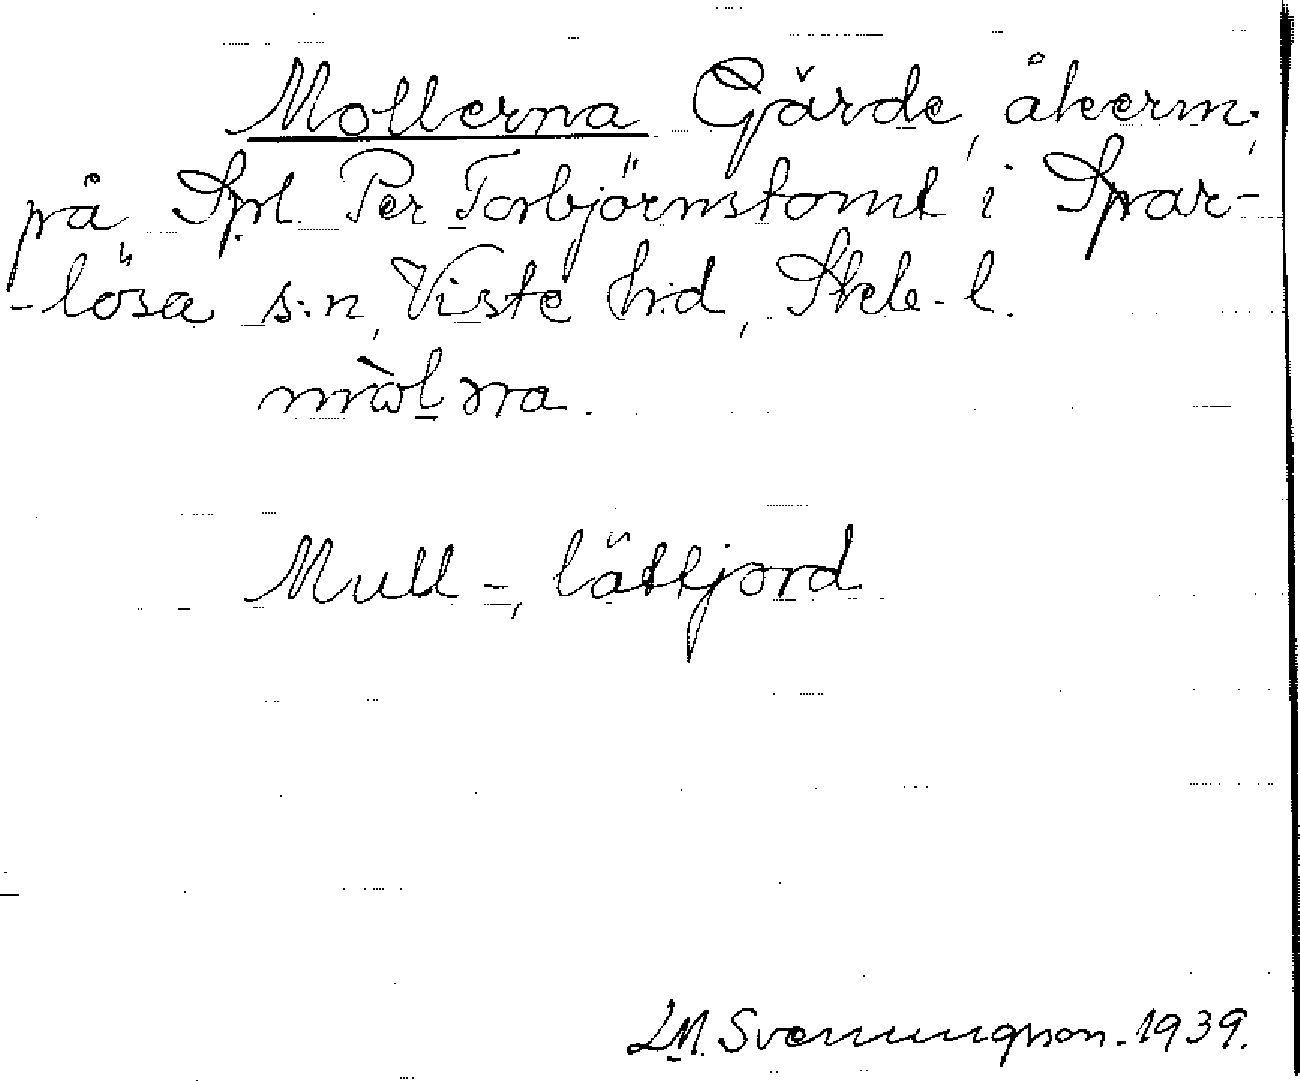 Mollerna Gärde, åkerm.,
på Spl. Per Torbjörnstomt i Spar-
-lösa s:n, Viste h:d, Skbg. l.
mòlna.
Mull-, lättjord
L.M. Svenungsson. 1939.